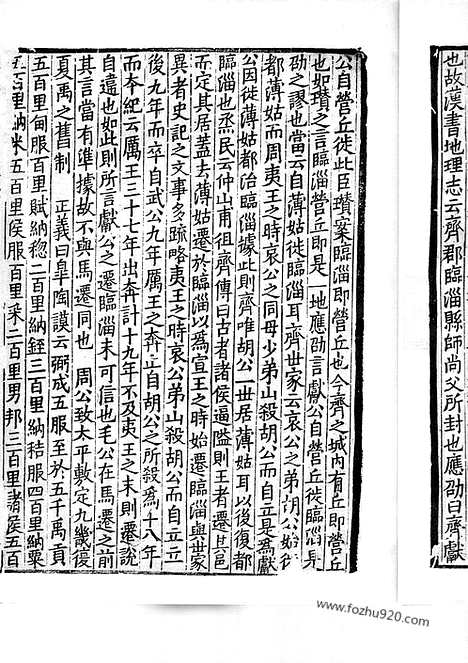 也故漢書地理志云齊郡臨淄縣師尚父所封也應劭曰齊獻
公自營丘徙此臣瓚案臨淄即營丘也今齊之城內有丘即營丘
也如瓚之言臨淄營丘即是一地應劭言獻公自營丘徙臨淄是
劭之謬也當云自薄姑徙臨淄耳齊世家云哀公之弟胡公始徙
都薄姑而周夷王之時哀公之同母少弟山殺胡公而自立是為獻
公因徙薄姑都治臨淄據此則齊唯胡公一世居薄姑耳以後復都
臨淄也烝民云仲山甫徂齊傳曰古者諸侯逼隘則王者遷其邑
而定其居蓋去薄姑遷於臨淄以為宣王之時始遷臨淄與世家
異者史記之文事多疏略夷王之時哀公弟山殺胡公而自立立一
後九年而卒自武公九年厲王之奔上自胡公之所殺為十八年
而本紀云厲王三十七年出奔計十九年不及夷王之末則遷說
自違也如此則所言獻公之遷臨淄未可信也毛公在馬遷之前
其言當有準據故不與馬遷同也 周公致太平敷定九畿復
夏禹之舊制 正義曰皋陶謨云弼成五服至於五千禹貢
五百里甸服百里賦納緫二百里納銍三百里納秸服四百里納粟
五百里納米五百里侯服百里采二百里男邦三百里諸侯五百
www.fozhu920.com